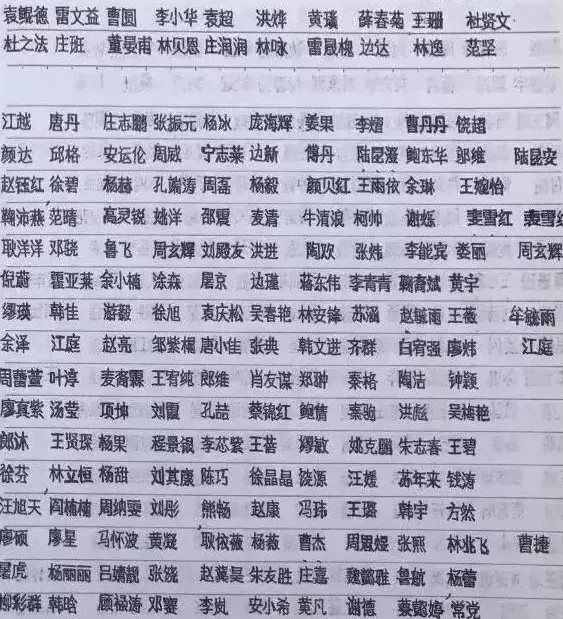 袁鲲德 雷文益 曹圆 李小华 袁超 洪烨 黄瑞 薛春菊 王珊 杜贤文
杜之法 庄班 董晏甫 林贝恩 庄润润 林咏 雷晟槐 边达 林逸 范坚
江越 唐丹 庄志鹏 张振元 杨冰 庞海辉 姜果 李熠 曹丹丹 饶超
颜达 邱格 安运伦 周威 宁志莱 边新 傅丹 陆昆漫 鲍东华 邬维 陆昆安
赵钰红 徐碧 杨赫 孔嫣涛 周磊 杨毅 颜贝红 王雨依 余琳 王嫁怡
鞠沛燕 范晴 高灵锐 姚洋 邵震 麦清 牛清浪 柯帅 谢烁 雪红 雪红
耿洋洋 邓骁 鲁飞 周玄辉 刘殿友 洪进 陶欢 张炜 李能宾 娄丽 周玄辉
倪蔚 霍亚莱 余小楠 涂森 屠京 边瑾 蒋东伟 李青青 鞠斌 黄宇
缪瑛 韩佳 游毅 徐旭 袁庆松 吴春艳 林安锋 苏涵 赵毓雨 王薇 牟毓雨
余泽 江庭 赵亮 邹紫楣 唐小佳 张典 韩文进 齐群 白宥强 廖炜 江庭
周蕾萱 叶淳 麦霖 王宥纯 郎维 肖友谋 郑翀 秦格 陶洁 钟颖
廖真紫 汤莹 项坤 刘霞 孔喆 蔡锦红 鲍倩 秦驰 洪彪 吴梅艳
郎沐 王贤琛 杨果 程景银 李芯紫 王荟 缪敏 姚克鹏 朱志春 王碧
徐芬 林立恒 杨甜 刘其康 陈巧 徐晶晶 凌源 汪媛 苏年来 钱涛
汪旭天 闫楠楠 周纳 刘彤 熊畅 赵康 冯玮 王璐 韩宇 方然
廖硕 廖星 马怀波 黄凝 耿依薇 杨薇 曹杰 周嫒 张熙 林兆飞 曹捷
屠虎 杨丽丽 吕婧靓 张饶 赵冀昊 朱友胜 庄嘉 魏懿雅 鲁航 杨蕾
柳彩群 韩晗 顾禄涛 邓寰 李岚 安小希 黄凡 谢德 蔡懿婷 常党